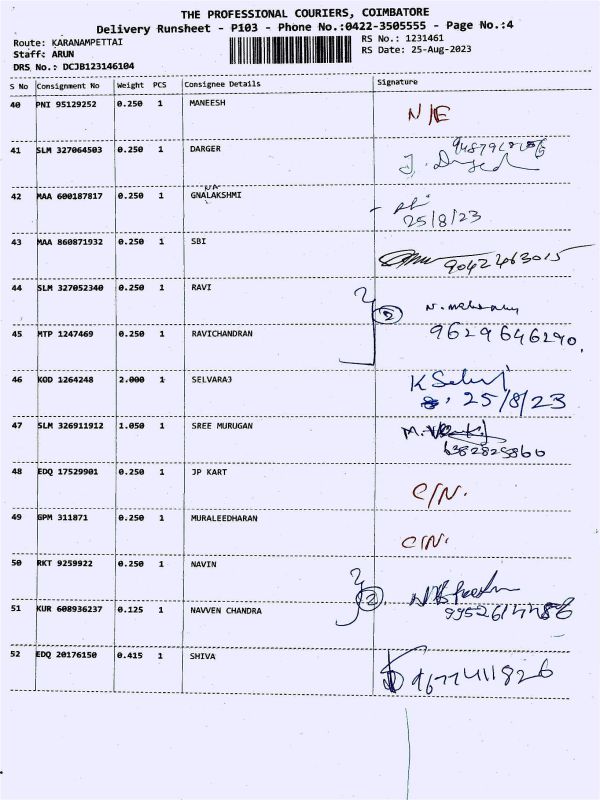 THE PROFESSIONAL COURIERS, COIMBATORE
Delivery Runsheet - P103 - Phone No.:0422-3505555 - Page No.:4
Route: KARANAMPETTAI RS No.: 1231461
Staff: ARUN RS Date: 25-Aug-2023
DRS No.: DCJB123146104
S No Consignment No Weight PCS Consignee Details Signature
40 PNI 95129252 0.250 1 MANEESH N/E
41 SLM 327064503 0.250 1 DARGER
42 MAA 600187817 0.250 1 GNALAKSHMI 25/8/23
43 MAA 860871932 0.250 1 SBI 9042463015
44 SLM 327052340 0.250 1 RAVI 2
45 MTP 1247469 0.250 1 RAVICHANDRAN 9629646290.
46 KOD 1264248 2.000 1 SELVARAJ K Selvaj
25/8/23
47 SLM 326911912 1.050 1 SREE MURUGAN
6382825860
48 EDQ 17529901 0.250 1 JP KART C/N.
49 GPM 311871 0.250 1 MURALEEDHARAN C/N.
50 RKT 9259922 0.250 1 NAVIN 2
51 KUR 608936237 0.125 1 NAVVEN CHANDRA
52 EDQ 20176150 0.415 1 SHIVA 9677411826